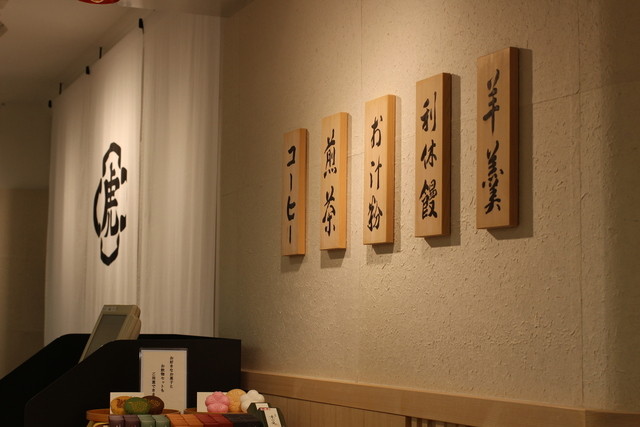 羊羹
利休饅
お汁粉
煎茶
コーヒー
虎